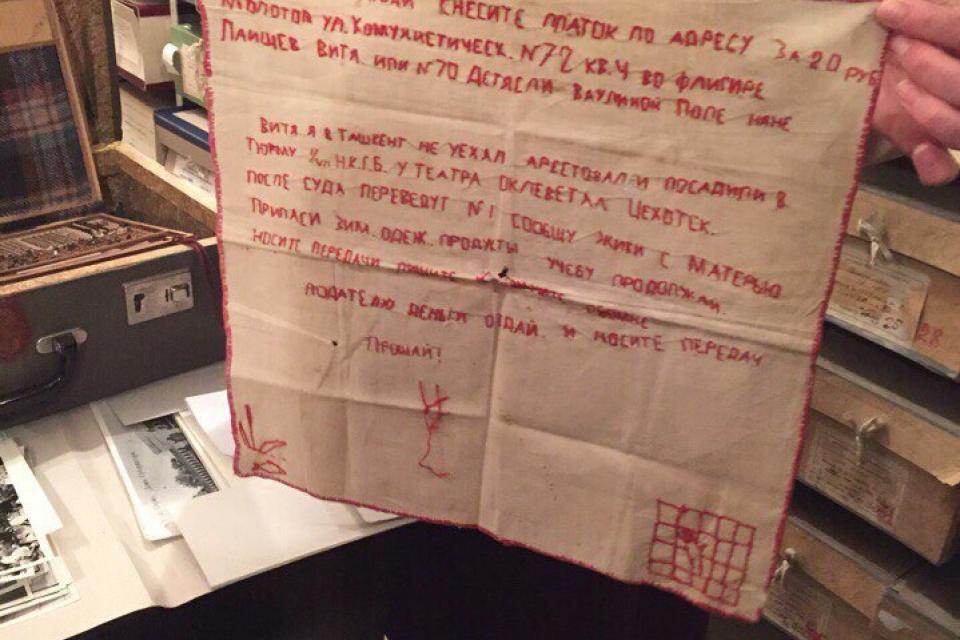 СНЕСИТЕ ПЛАТОК ПО АДРЕСУ ЗА 20 РУБ
МОЛОТОВ УЛ. КОМУНИСТИЧЕСК. N72 КВ.4 ВО ФЛИГИРЕ
ПАИЩЕВ ВИТЯ ИЛИ N70 ДЕТЯСЛИ ВАУЛИНОЙ ПОЛЕ НЯНЕ
ВИТЯ Я В ТАШКЕНТ НЕ УЕХАЛ АРЕСТОВАЛИ И ПОСАДИЛИ В
ТЮРМУ Н.К.Г.Б. У ТЕАТРА ОКЛЕВЕТАЛ ЦЕХОТЕК.
ПОСЛЕ СУДА ПЕРЕВЕДУТ N1 СООБЩУ ЖИВИ С МАТЕРЬЮ
ПРИПАСИ ЗИМ. ОДЕЖ. ПРОДУКТЫ УЧЕБУ ПРОДОЛЖАЙ.
НОСИТЕ ПЕРЕДАЧИ ПИШИТЕ
ПОДАТЕЛЮ ДЕНЬГИ ОТДАЙ. И НОСИТЕ ПЕРЕДАЧ
ПРОЩАЙ!
28